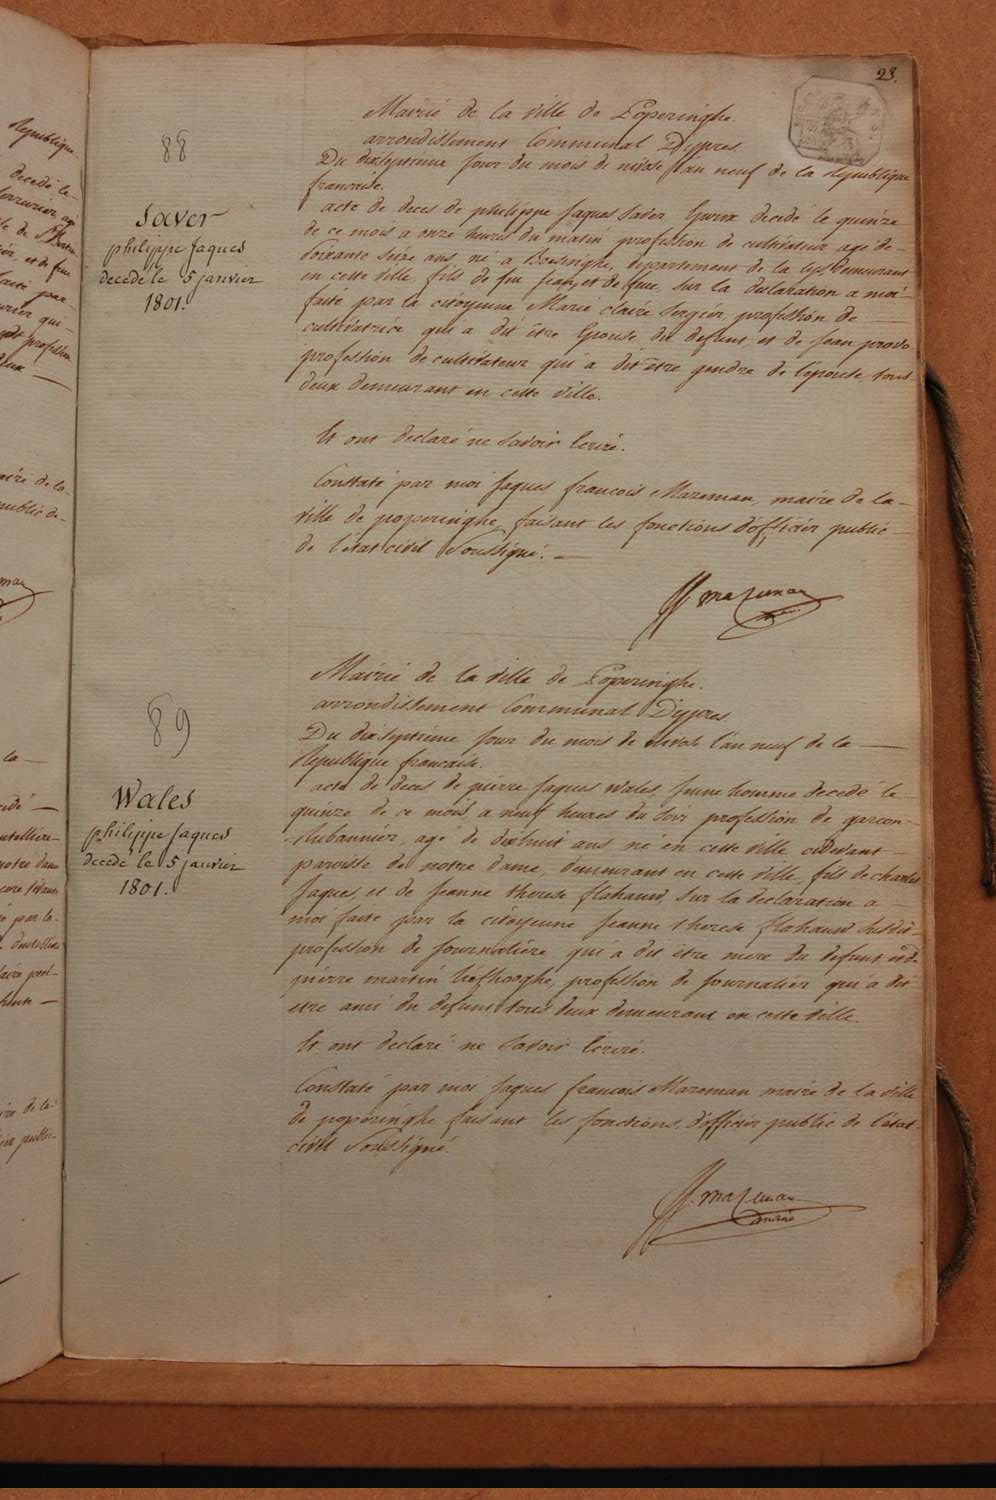 28.
88
Saver
philippe Jaques
decedé le 5 janvier
1801.
Mairié de la ville de Poperinghe.
arrondissement Communal D'ypres.
Du dixseptieme jour du mois de nivose l'an neuf de la Republique
française.
acte de deces de philippe Jaques Saver Epoux decedé le quinze
de ce mois a onze heures du matin profession de cultivateur agé de
Soixante Seize ans, né a Boesinghe, departement de la Lys, demeurant
en cette ville, fils de feu Jean, et de feue, Sur la declaration a moi
faite par la citoyenne Marie Claire Sergier, profession de
cultivatrice qui a dit être Epouse du defunt, et de Jean provo
profession de cultivateur qui a dit être gendre de l'epouse tous
deux demeurant en cette ville.
Et ont declaré ne Savoir Ecrire.
Constaté par moi Jaques francois Mazeman maire de la
ville de poperinghe, faisant les fonctions d'officier public
de l'etat civil Soussigné.
JJ mazeman
89
Wales
philippe Jaques
decedé le 5 janvier
1801.
Mairié de la ville de Poperinghe.
arrondissement Communal D'ypres.
Du dixseptieme jour du mois de nivose l'an neuf de la
Republique francaise.
acte de deces de pierre Jaques Wales, jeune homme decedé le
quinze de ce mois, a neuf heures du soir profession de garcon
Rubannier, agé de dixhuit ans né en cette ville cidevant
paroisse de notre dame, demeurant en cette ville, fils de charles
Jaques, et de Jeanne therese flahauw, Sur la declaration a
moi faite par la citoyenne Jeanne therese flahauw Susdit
profession de journaliere qui a dit être mere du defunt, et de
pierre martin profession de journalier qui a dit
etre ami du defunt tous deux demeurant en cette ville.
Et ont declaré ne Savoir Ecrire.
Constaté par moi Jaques francois Mazeman maire de la ville
de poperinghe faisant les fonctions d'officier public de l'etat
civil Soussigné.
JJ mazeman
maire